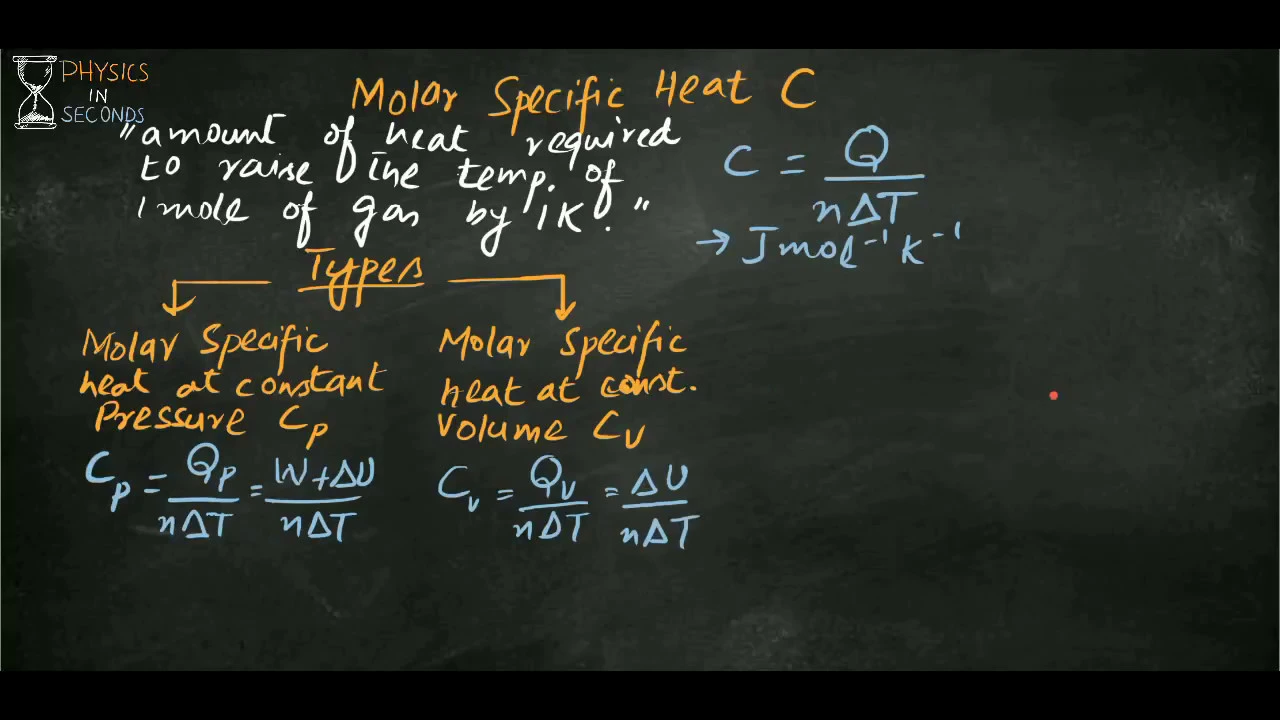 PHYSICS
IN
SECONDS
Molar Specific Heat C
"amount of heat required
to raise the temp. of
1 mole of gas by 1K."
C = Q / nΔT
→ J mol⁻¹ K⁻¹
Types
Molar Specific
heat at constant
Pressure Cp
Cp = Qp / nΔT = W + ΔU / nΔT
Molar Specific
heat at const.
Volume Cv
Cv = Qv / nΔT = ΔU / nΔT